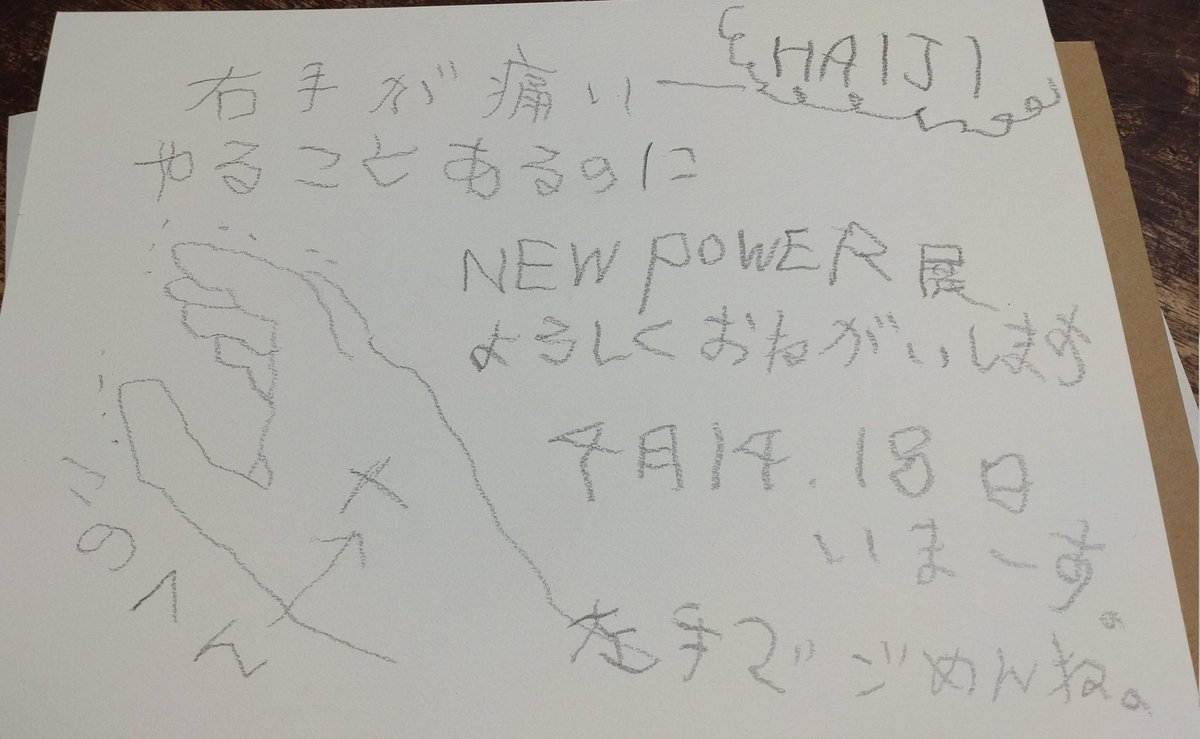 右手が痛い
HAIJI
やることあるのに
NEW POWER展
よろしくおねがいします
4月14.18日
いまーす。
このへん
×
左手でごめんね。